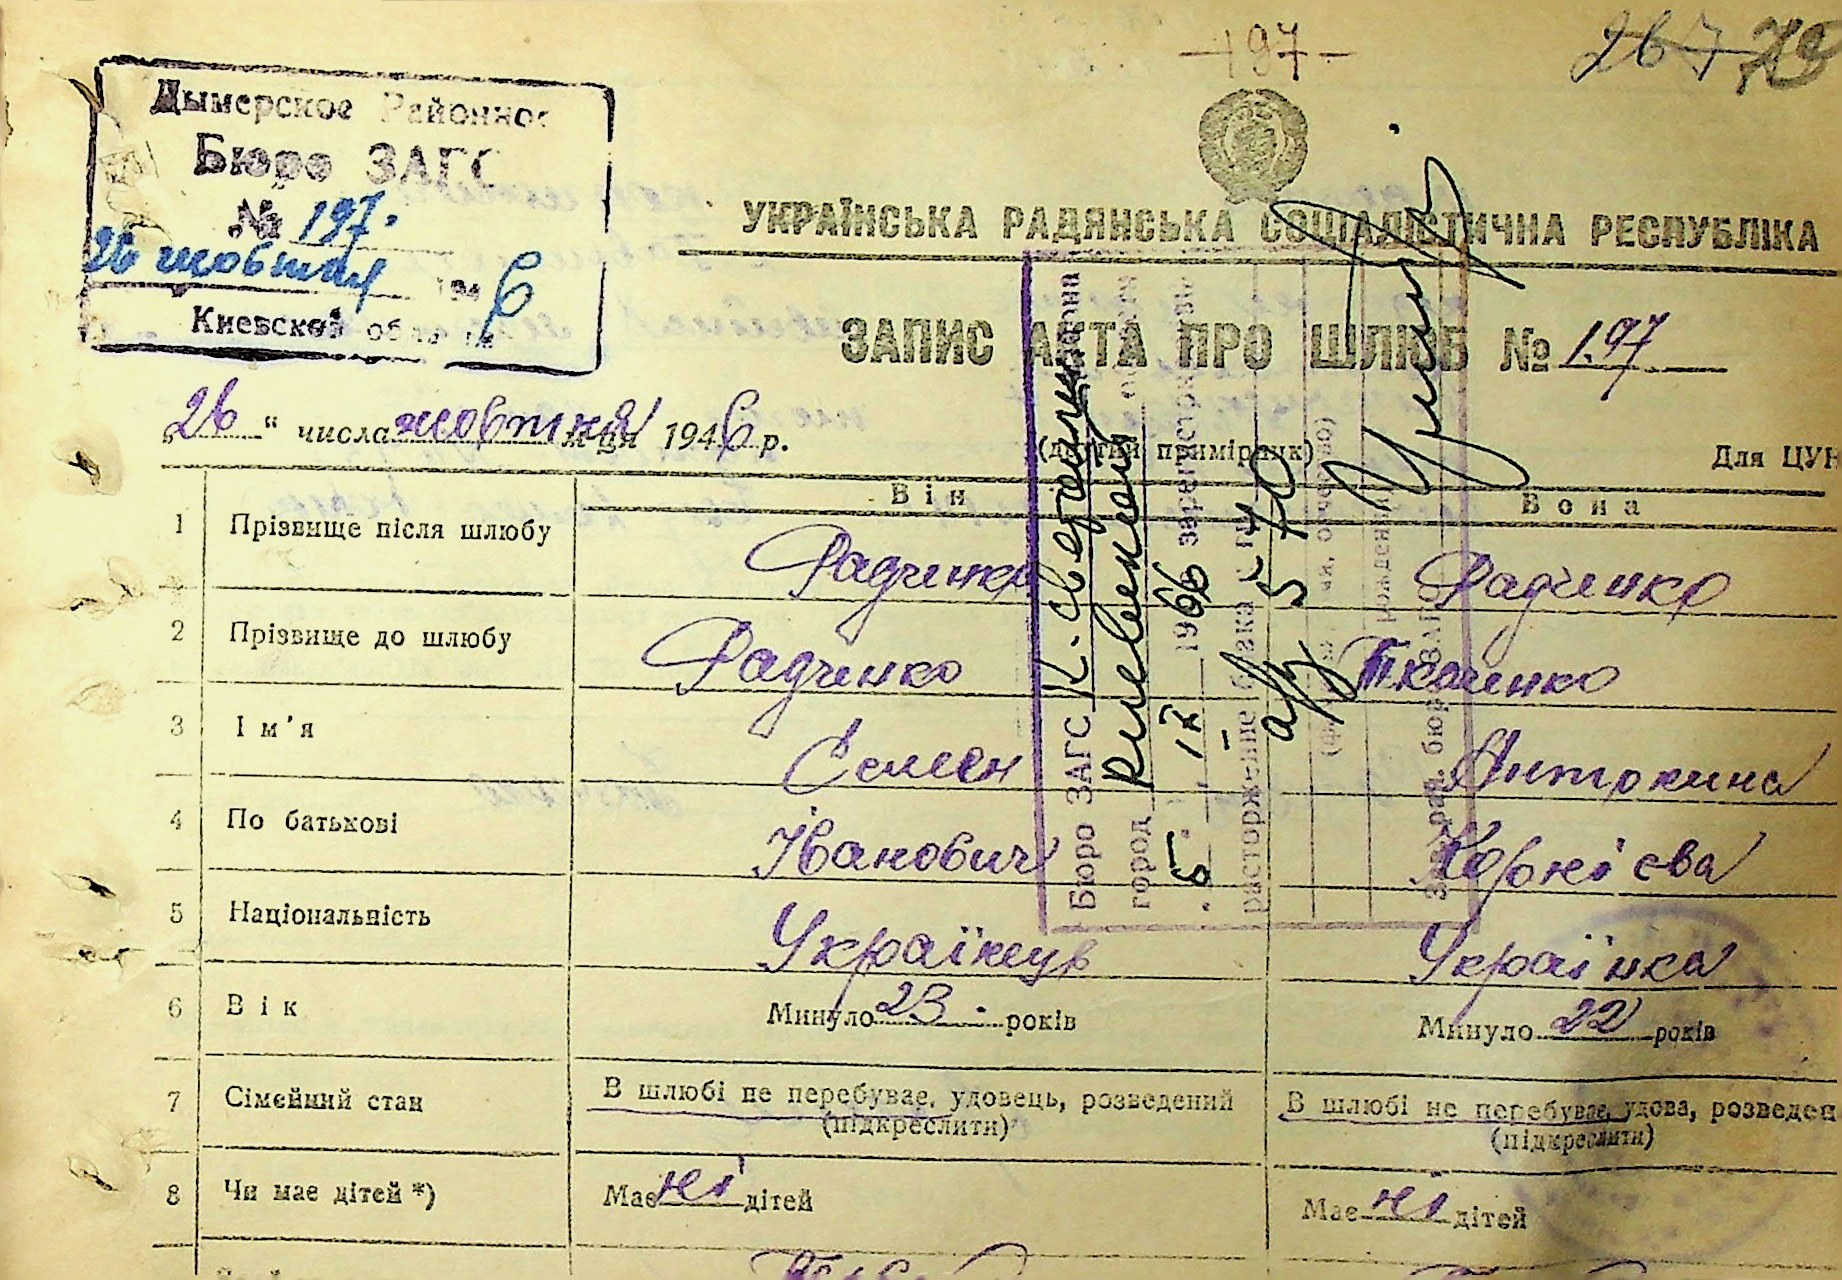 -197-
267
Дымерское Районное
Бюро ЗАГС
№ 197.
26 жовтня 1946
Киевской области
УКРАЇНСЬКА РАДЯНСЬКА СОЦІАЛІСТИЧНА РЕСПУБЛІКА
ЗАПИС АКТА ПРО ШЛЮБ № 197
„26“ числа жовтня м-ця 1946 р.
(другий примірник)
Для ЦУН
Він
Вона
1 Прізвище після шлюбу Радченко Радченко
2 Прізвище до шлюбу Радченко Ткаченко
3 Ім'я Семен Антоніна
4 По батькові Іванович Корнієва
5 Національність Українець Українка
6 Вік Минуло 23 років Минуло 22 років
7 Сімейний стан В шлюбі не перебуває, удовець, розведений В шлюбі не перебуває, удова, розведен
(підкреслити) (підкреслити)
8 Чи має дітей *) Має ні дітей Має ні дітей
Бюро ЗАГС района
город области
5 IX 1966 зарегистрировано
расторжение брака № 70
Зав. рай. бюро ЗАГС